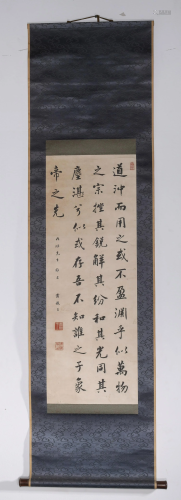 道沖而用之或不盈渊乎似萬物
之宗挫其銳解其纷和其光同其
塵湛兮似或存吾不知誰之子象
帝之先